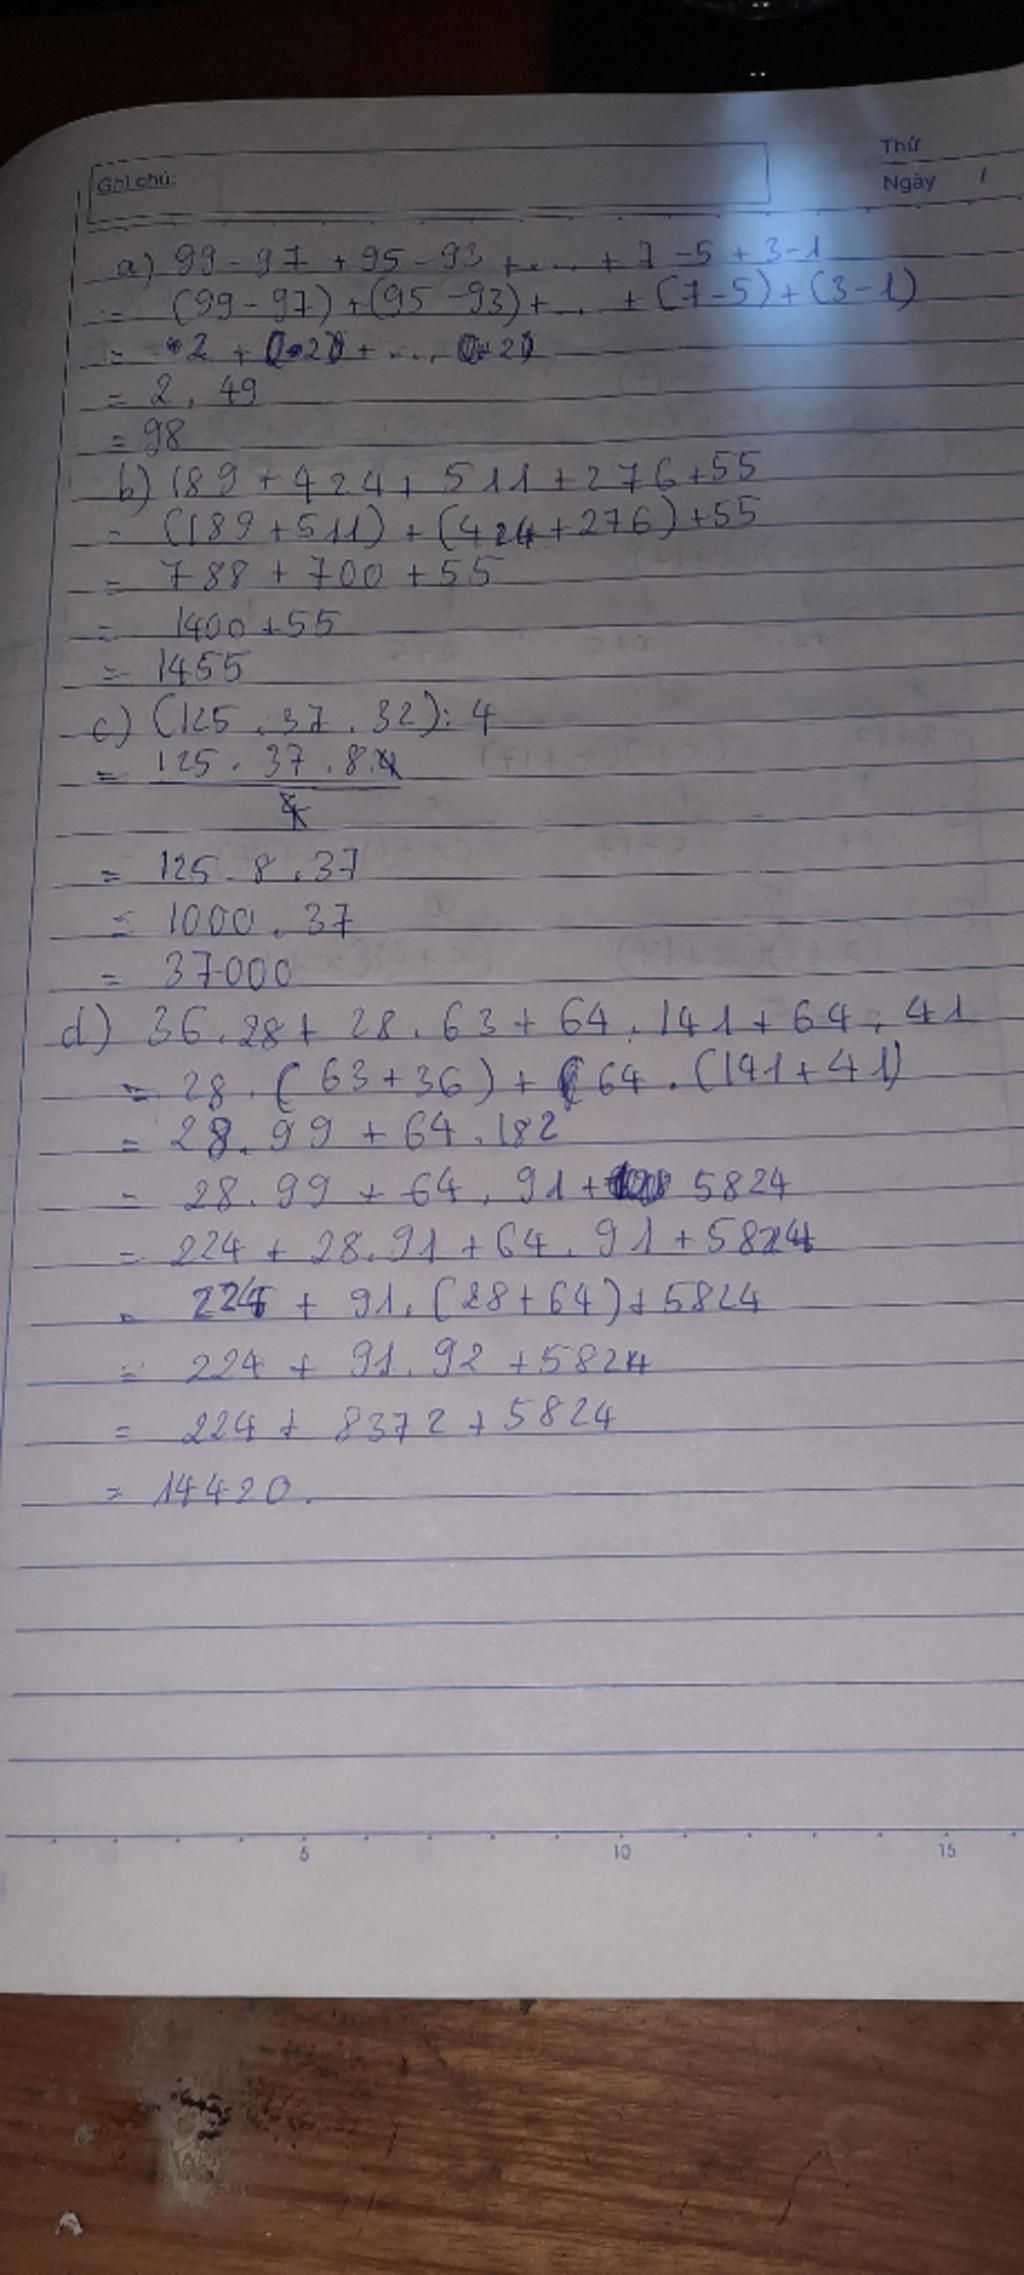 Thứ
Ghi chú:
Ngày /
a) 99 - 97 + 95 - 93 + ... + 7 - 5 + 3 - 1
= (99 - 97) + (95 - 93) + ... + (7 - 5) + (3 - 1)
= 2 + 2 + ... 2
= 2 . 49
= 98
b) 189 + 424 + 511 + 276 + 55
= (189 + 511) + (424 + 276) + 55
= 700 + 55
= 1400 + 55
= 1455
c) (125 . 37 . 32) : 4
= 125 . 37 . 8 . 4
4
= 125 . 8 . 37
= 1000 . 37
= 37000
d) 36 . 28 + 28 . 63 + 64 . 141 + 64 . 41
= 28 . ( 63 + 36 ) + 64 . (141 + 41)
= 28 . 99 + 64 . 182
= 28 . 99 + 64 . 91 + 5824
= 224 + 28 . 91 + 64 . 91 + 5824
= 224 + 91 . (28 + 64) + 5824
= 224 + 91 . 92 + 5824
= 224 + 8372 + 5824
= 14420.
5 10 15